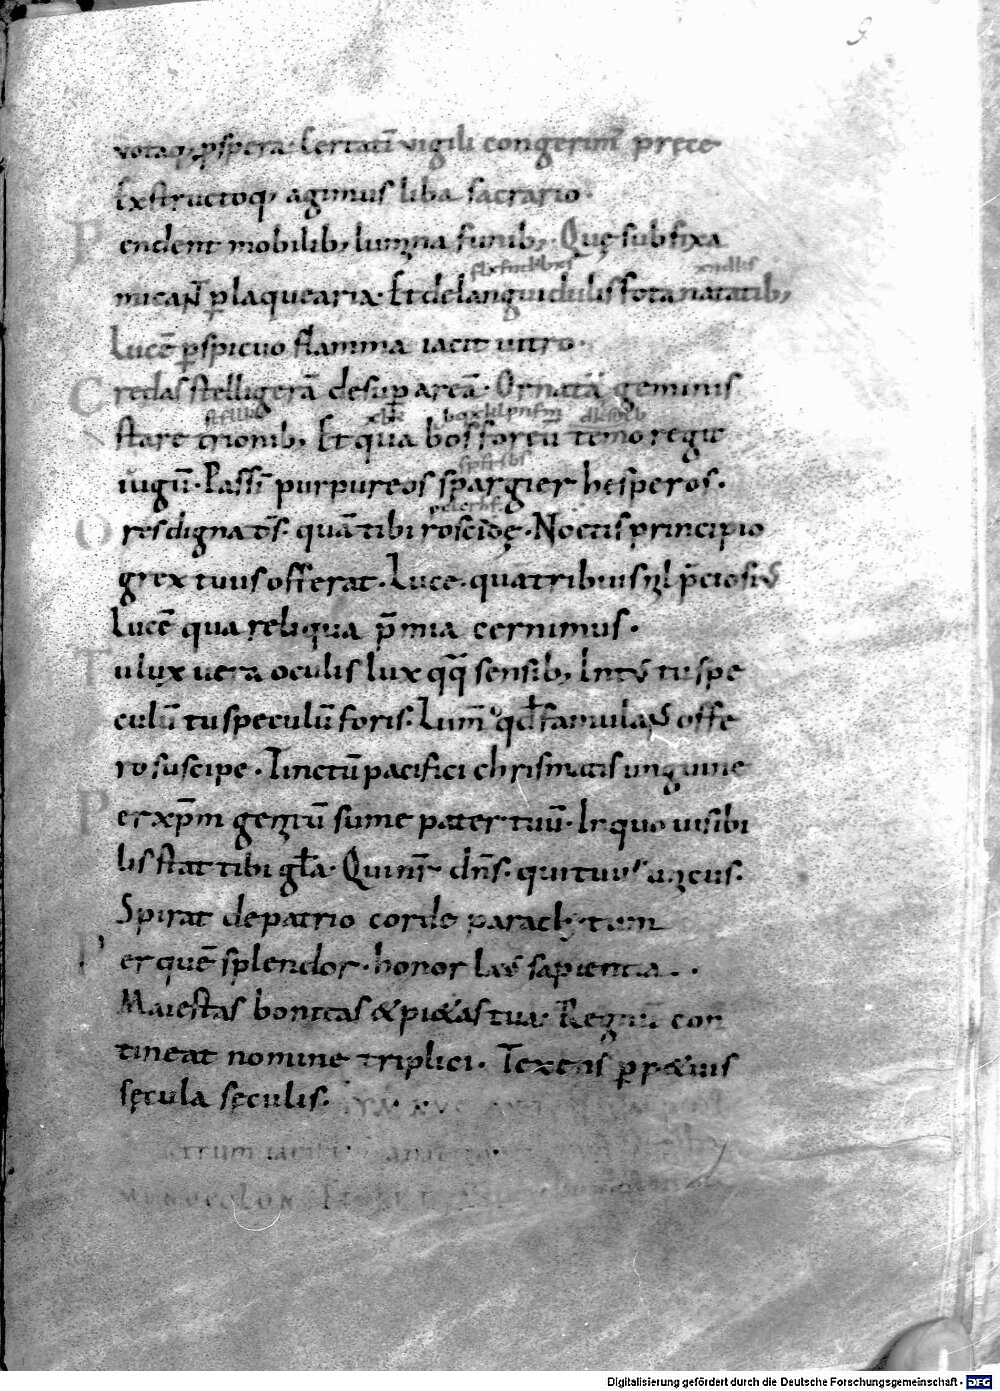 9
votaq; ꝑspera· Certatī vigili congerim̄ prece
Exstructoq; agimus liba sacrario·
P endent mobilib; lumina funib;· Quę subfixa
micaɴt ꝑ laquearia· Et de languidulis fota natatib;
Lucē ꝑspicuo flamma iacit uitro·
C redas stelligerā desup̄ areā· Ornatā geminis
stare trionib; Et qua bosforeū temo regit
iugū· Passī purpureos spargier hesperos·
O res digna ds̄· quā tibi roscidę· Noctis principio
grex tuus offerat· Luce· qua tribuis nl̄ p̄ciosiꝰ
Lucē qua reliqua p̄mia cernimus·
T u lux uera oculis lux qq̄ sensib; Intꝰ tu spe
culū tu speculū foris· Lum̄ qd̄ famulaꝰ offe
ro suscipe· Tinctū pacifici chrismatis unguine
P er xp̄m genitū sume pater tuū· In quo uisibi
lis stat tibi gl̄a· Qui nr̄ dn̄s· qui tuus unicus·
Spirat de patrio corde paraclytum
P er quē splendor· honor laꝰ sapientia··
Maiestas bonitas &pi&as tua· Regnū con
tineat nomine triplici· Texens ꝑp&uis
sęcula sęculis·
Digitalisierung gefördert durch die Deutsche Forschungsgemeinschaft - DFG